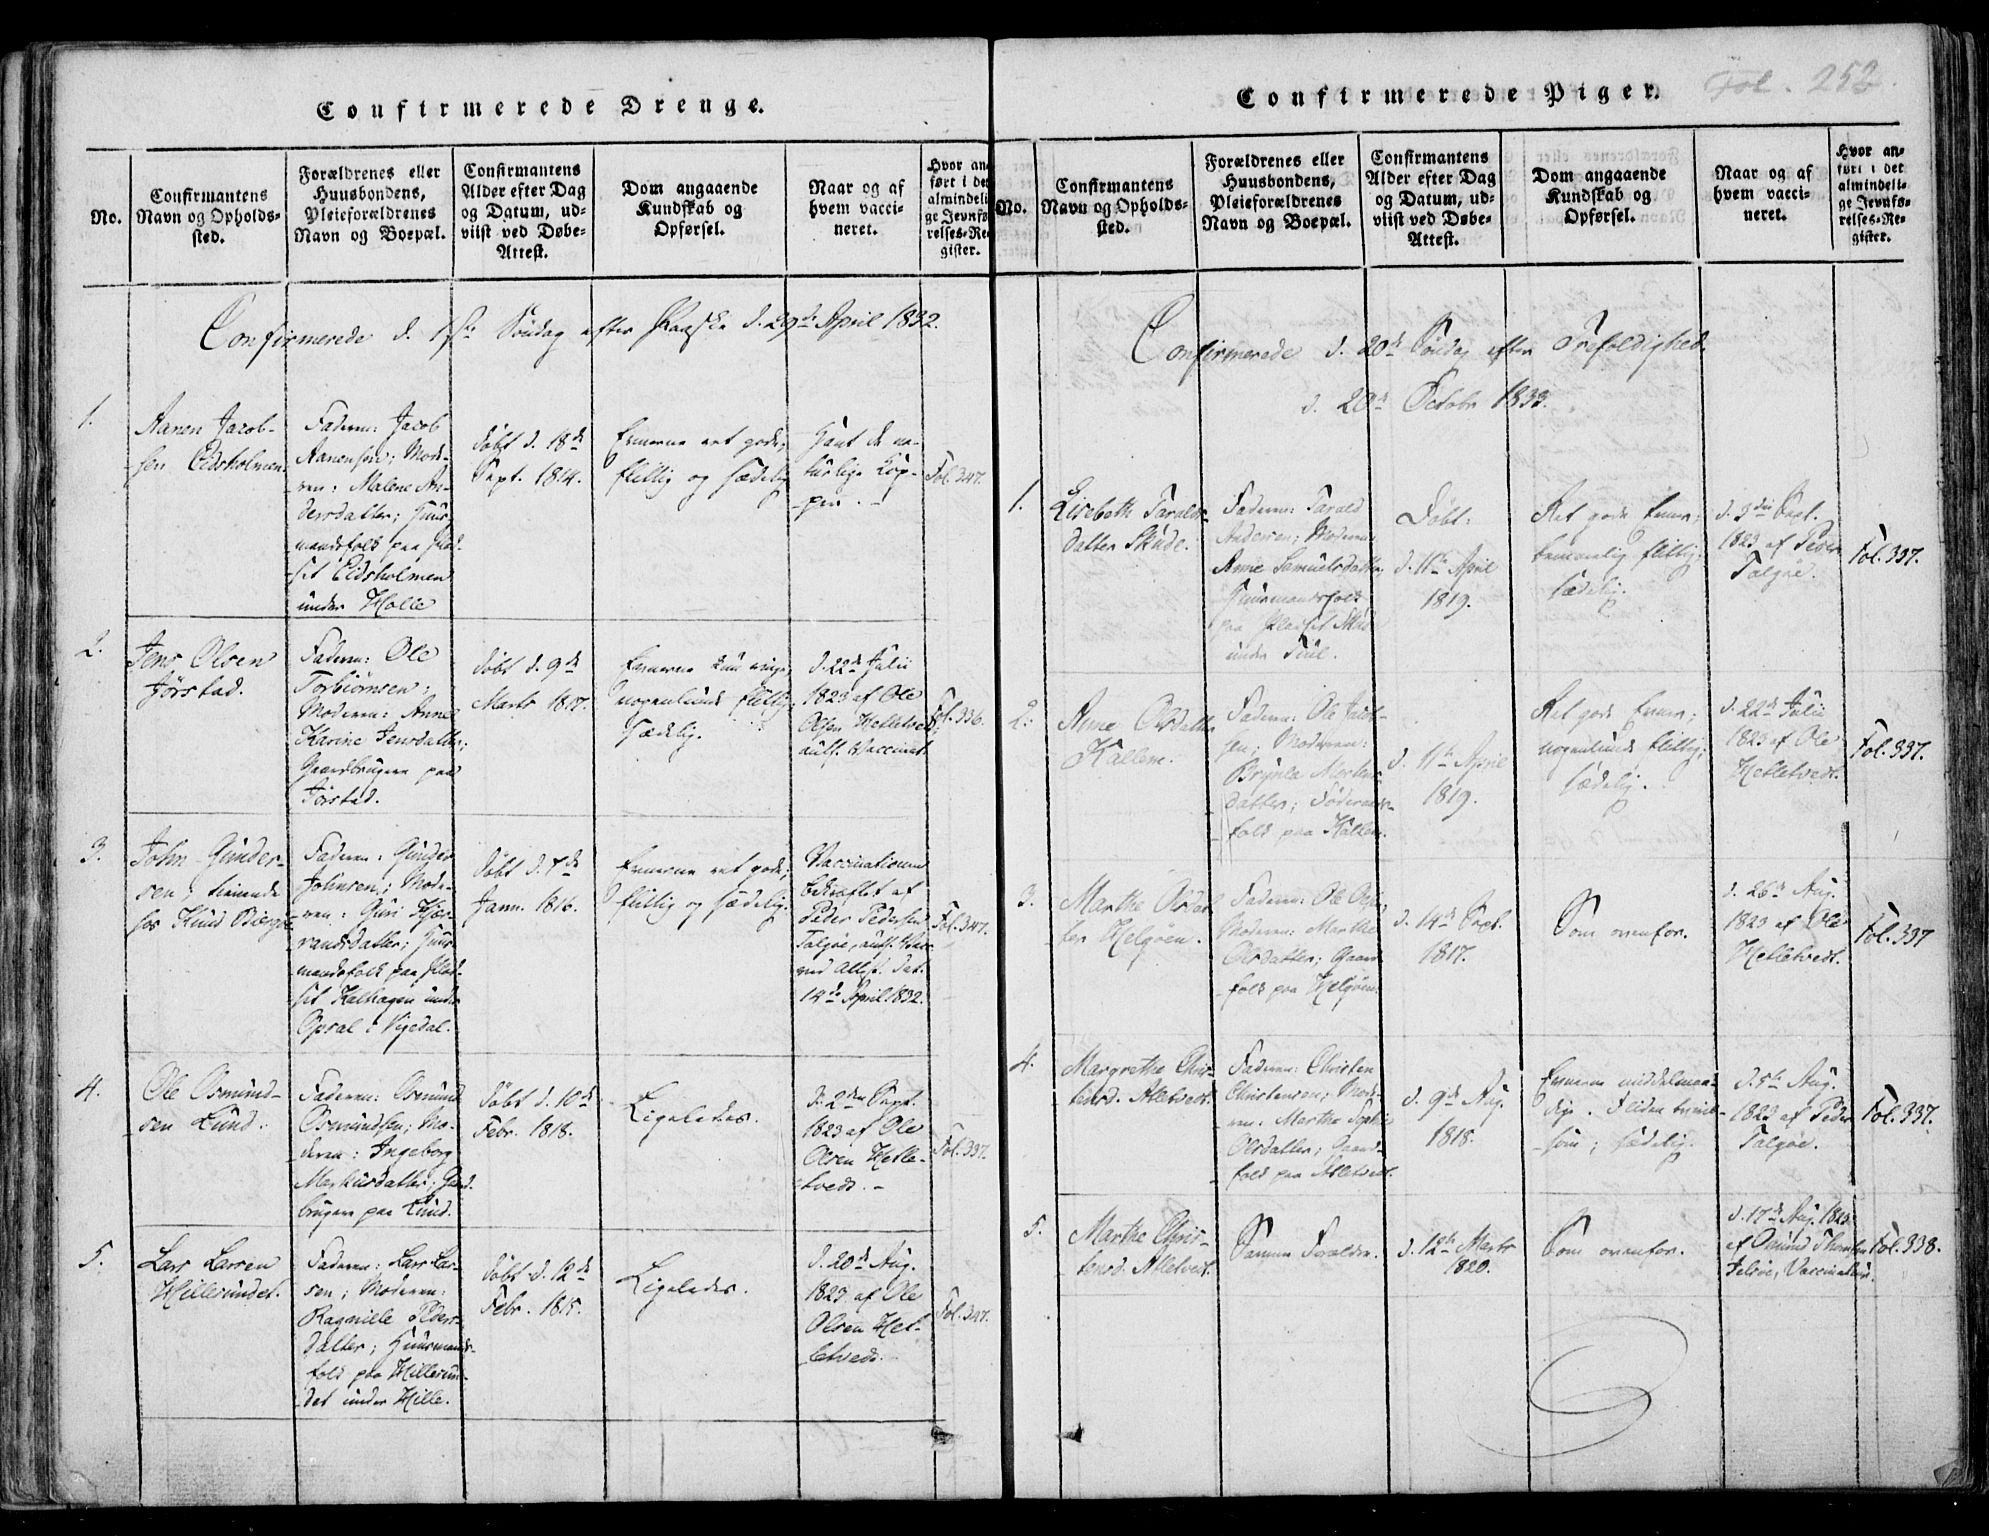 Confirmerede Drenge.
No.
Confirmantens
Navn og Opholds-
sted.
Forældrenes eller
Huusbondens,
Pleieforældrenes
Navn og Boepæl.
Confirmantens
Alder efter Dag
og Datum, ud-
viist ved Døbe-
Attest.
Dom angaaende
Kundskab og
Opførsel.
Naar og af
hvem vacci-
neret.
Hvor an-
ført i det
almindeli-
ge Jevnfø-
relses-Re-
gister.
Confirmerede d. 1ste Søndag efter Paaske d. 29de April 1832.
1.
Aanen Jacob-
sen Eidsholmen.
Faderen: Jacob
Aanensen; Mode-
ren: Malene An-
dersdatter; Huus-
mandsfolk paa Plad-
set Eidsholmen
under Holle
døbt d. 18de
Sept. 1814.
Evnerne ret gode;
flittig og sædelig
Havt de na-
turlige Kop-
per. -
Fol. 347.
2.
Jens Olsen
Jørstad.
Faderen: Ole
Torbiørnsen;
Moderen: Anne
Karine Jensdatter;
Gaardbrugere paa
Jørstad.
døbt d. 9de
Marts 1817.
Evnerne kun ringe;
nogenlunde flittig;
sædelig.
d. 22de Julii
1823 af Ole
Olsen Hetletvedt,
aut. Vaccinat.
Fol. 336.
3.
John Gunder-
sen, tienende
hos Knud
Faderen: Gunder
Johnsen; Mode-
ren: Guri
randsdatter; Huus-
mandsfolk paa Plad-
set Kalhagen under
Opsal i Vigedal.
døbt d. 7de
Janu. 1816.
Evnerne ret gode;
flittig og sædelig.
Vaccinationen
bekræftet af
Peder Pedersen
Talgøe, aut. Vacc.
ved Attest dat.
14de April 1832.
Fol. 347.
4.
Ole Osmund-
sen Lund.
Faderen: Osmund
Osmundsen; Mo-
deren: Ingeborg
Markusdatter; Gaard-
brugere paa Lund.
døbt d. 10de
Febr. 1818.
Ligeledes.
d. 2den Sept.
1823 af Ole
Olsen Hetle-
tvedt. -
Fol. 337.
5.
Lars Larsen
Hillesundet.
Faderen: Lars Lar-
sen; Moderen:
Ragnille Peders-
datter; Huusmands-
folk paa Hillesun-
det under Hille.
døbt d. 12de
Febr. 1815.
Ligeledes.
d. 20de Aug.
1823 af Ole
Olsen Het-
letvedt.
Fol. 347.
Confirmerede Piger.
Fol. 252.
No.
Confirmantens
Navn og Opholds-
sted.
Forældrenes eller
Huusbondens,
Pleieforældrenes
Navn og Boepæl.
Confirmantens
Alder efter Dag
og Datum, ud-
viist ved Døbe-
Attest.
Dom angaaende
Kundskab og
Opførsel.
Naar og af
hvem vacci-
neret.
Hvor an-
ført i det
almindeli-
ge Jevnfø-
relses-Re-
gister.
Confirmerede d. 20de Søndag efter Trefoldighed.
d. 20de Octobr 1833.
1.
Lisebeth Taralds-
datter Skude.
Faderen: Tarald
Andersen; Moderen:
Anne Samuelsdatter,
Huusmandsfolk
paa Pladset Skud
under
Døbt:
d. 11te April
1819.
Ret gode Evner;
temmelig flittig;
sædelig.
d. 9de Sept.
1823 af Peder
Talgøe.
Fol. 337.
2.
Anne Olsdatter
Kallem.
Faderen: Ole Jacob-
sen; Moderen:
Brynla Mortens-
datter; Føderaads-
folk paa Kallem.
d. 11te April
1819.
Ret gode Evner;
nogenlunde flittig;
sædelig.
d. 22de Julii
1823 af Ole
Hetletvedt.
Fol. 337.
3.
Marthe Olsdat-
ter Helgøen.
Faderen: Ole Olsen;
Moderen: Marthe
Olsdatter; Gaard-
folk paa Helgøen.
d. 14de Sept.
1817.
Som ovenfor.
d. 26de Aug.
1823 af Ole
Hetletvedt.
Fol. 337
4.
Margrethe Chris-
tensd. Atletvedt.
Faderen: Christen
Christensen; Mode-
ren: Marthe Sophie
Olsdatter; Gaard-
folk paa Atletvedt.
d. 9de Aug.
1818.
Evnerne middelmaa-
dige. Fliden
som; sædelig.
d. 5te Aug.
1823 af Peder
Talgøe.
Fol. 337.
5.
Marthe Chris-
tensd. Atletvedt.
Samme Forældre.
d. 12te Marts
1820.
Som ovenfor.
d. 17de Aug. 1825
af Osmund
Jelsøe, Vaccinatør.
Fol. 338.